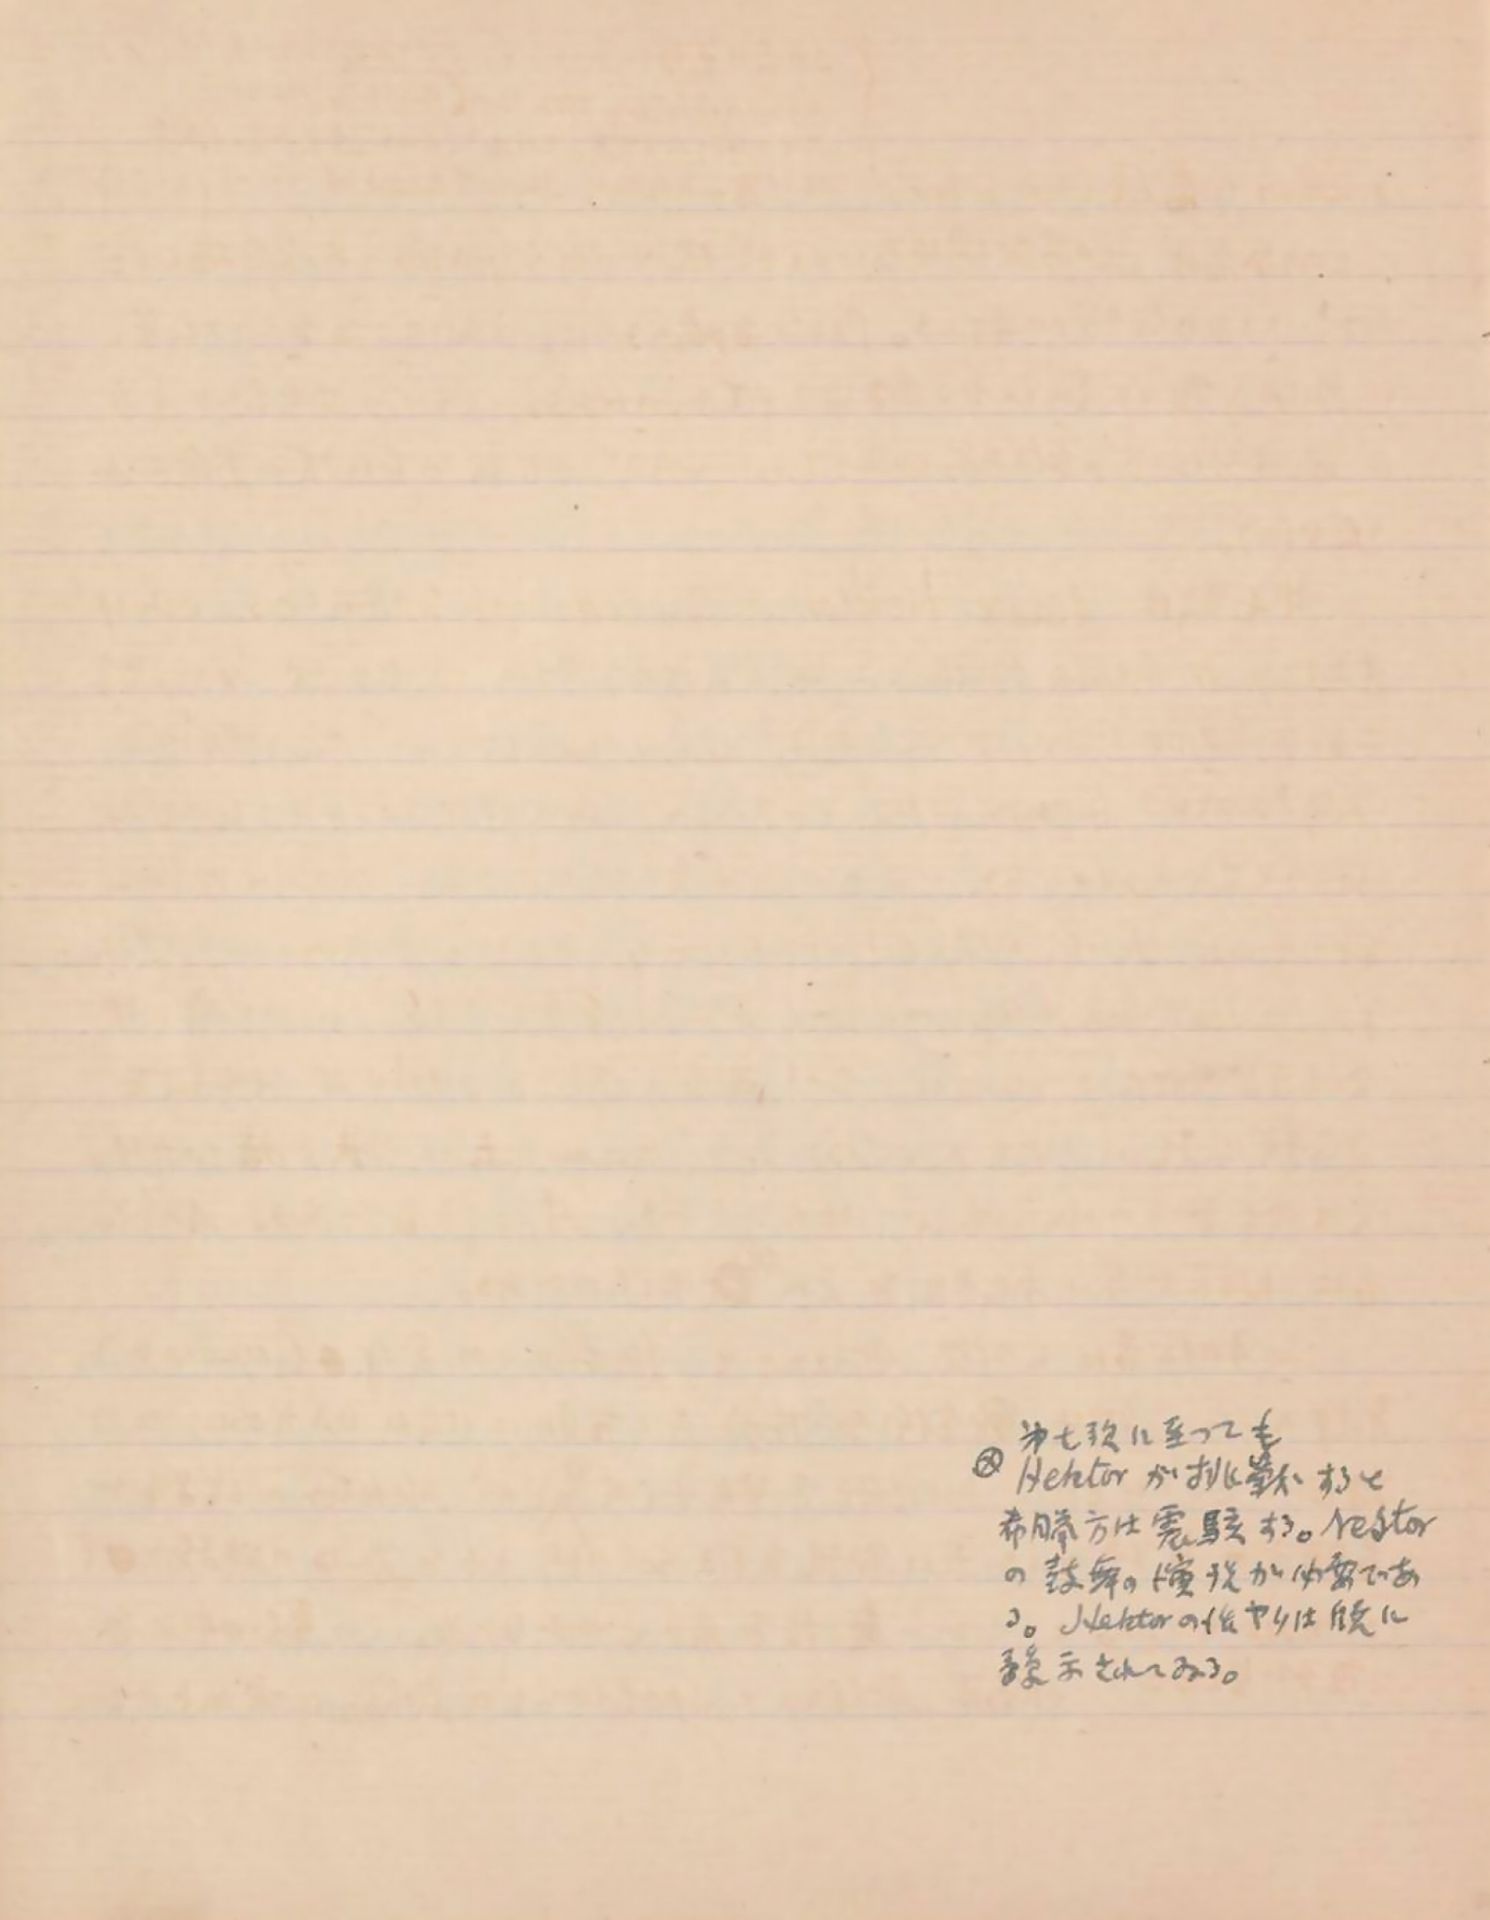 第七歌に至つても
⊗ Hektor が挑戦すると
希臘方は震駭する。Nestor
の鼓舞の演説が必要であ
る。Hektorの やりは既に
示されてゐる。